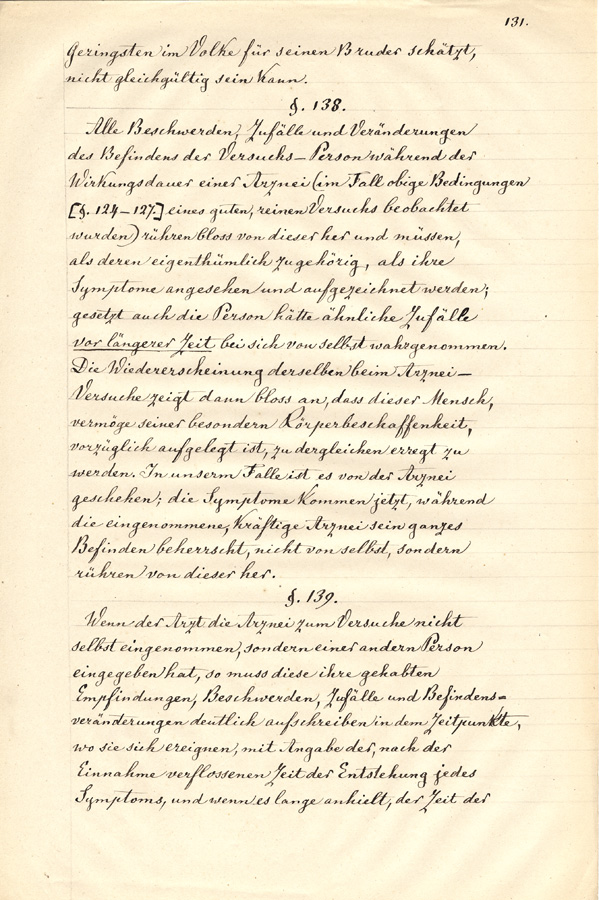 131.
Geringsten im Volke für seinen Bruder schätzt,
nicht gleichgültig sein kann.
§. 138.
Alle Beschwerden, Zufälle und Veränderungen
des Befindens der Versuchs-Person während der
Wirkungsdauer einer Arznei (im Fall obige Bedingungen
[§. 124-127.] eines guten, reinen Versuchs beobachtet
wurden) rühren bloss von dieser her und müssen,
als deren eigenthümlich zugehörig, als ihre
Symptome angesehen und aufgezeichnet werden;
gesetzt auch die Person hätte ähnliche Zufälle
vor längerer Zeit bei sich von selbst wahrgenommen.
Die Wiedererscheinung derselben beim Arznei-
Versuche zeigt dann bloss an, dass dieser Mensch,
vermöge seiner besondern Körperbeschaffenheit,
vorzüglich aufgelegt ist, zu dergleichen erregt zu
werden. In unserm Falle ist es von der Arznei
geschehen; die Symptome kommen jetzt, während
die eingenommene, kräftige Arznei sein ganzes
Befinden beherrscht, nicht von selbst, sondern
rühren von dieser her.
§. 139.
Wenn der Arzt die Arznei zum Versuche nicht
selbst eingenommen, sondern einer andern Person
eingegeben hat, so muss diese ihre gehabten
Empfindungen, Beschwerden, Zufälle und Befindens=
veränderungen deutlich aufschreiben in dem Zeitpunkte,
wo sie sich ereignen, mit Angabe der, nach der
Einnahme verflossenen Zeit der Entstehung jedes
Symptoms, und wenn es lange anhielt, der Zeit der